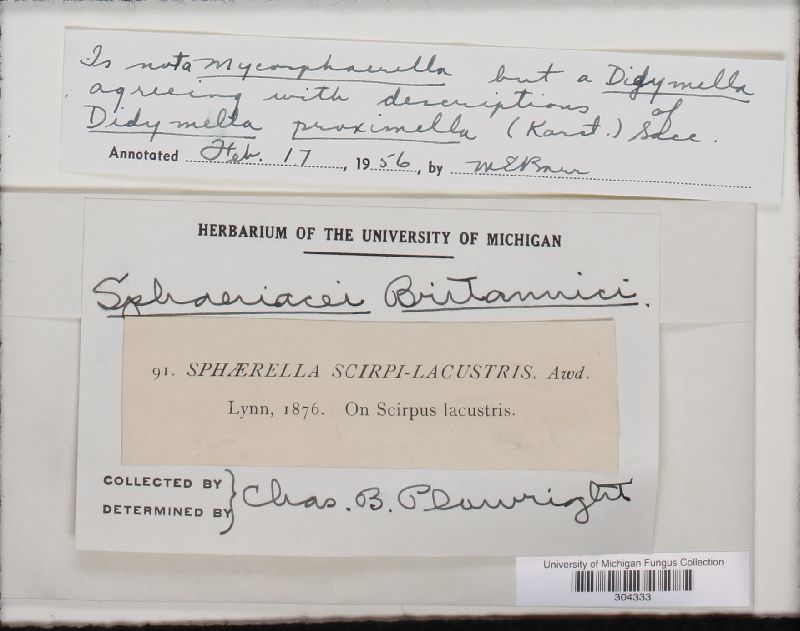 Is not a Mycosphaerella but a Didymella
agreeing with descriptions of
Didymella proximella (Karst.) Sacc.
Annotated Feb. 17, 1956, by M E Barr
HERBARIUM OF THE UNIVERSITY OF MICHIGAN
Sphaeriacei Britannici.
91. SPHÆRELLA SCIRPI-LACUSTRIS. Awd.
Lynn, 1876. On Scirpus lacustris.
COLLECTED BY
DETERMINED BY
Chas. B. Plowright
University of Michigan Fungus Collection
304333